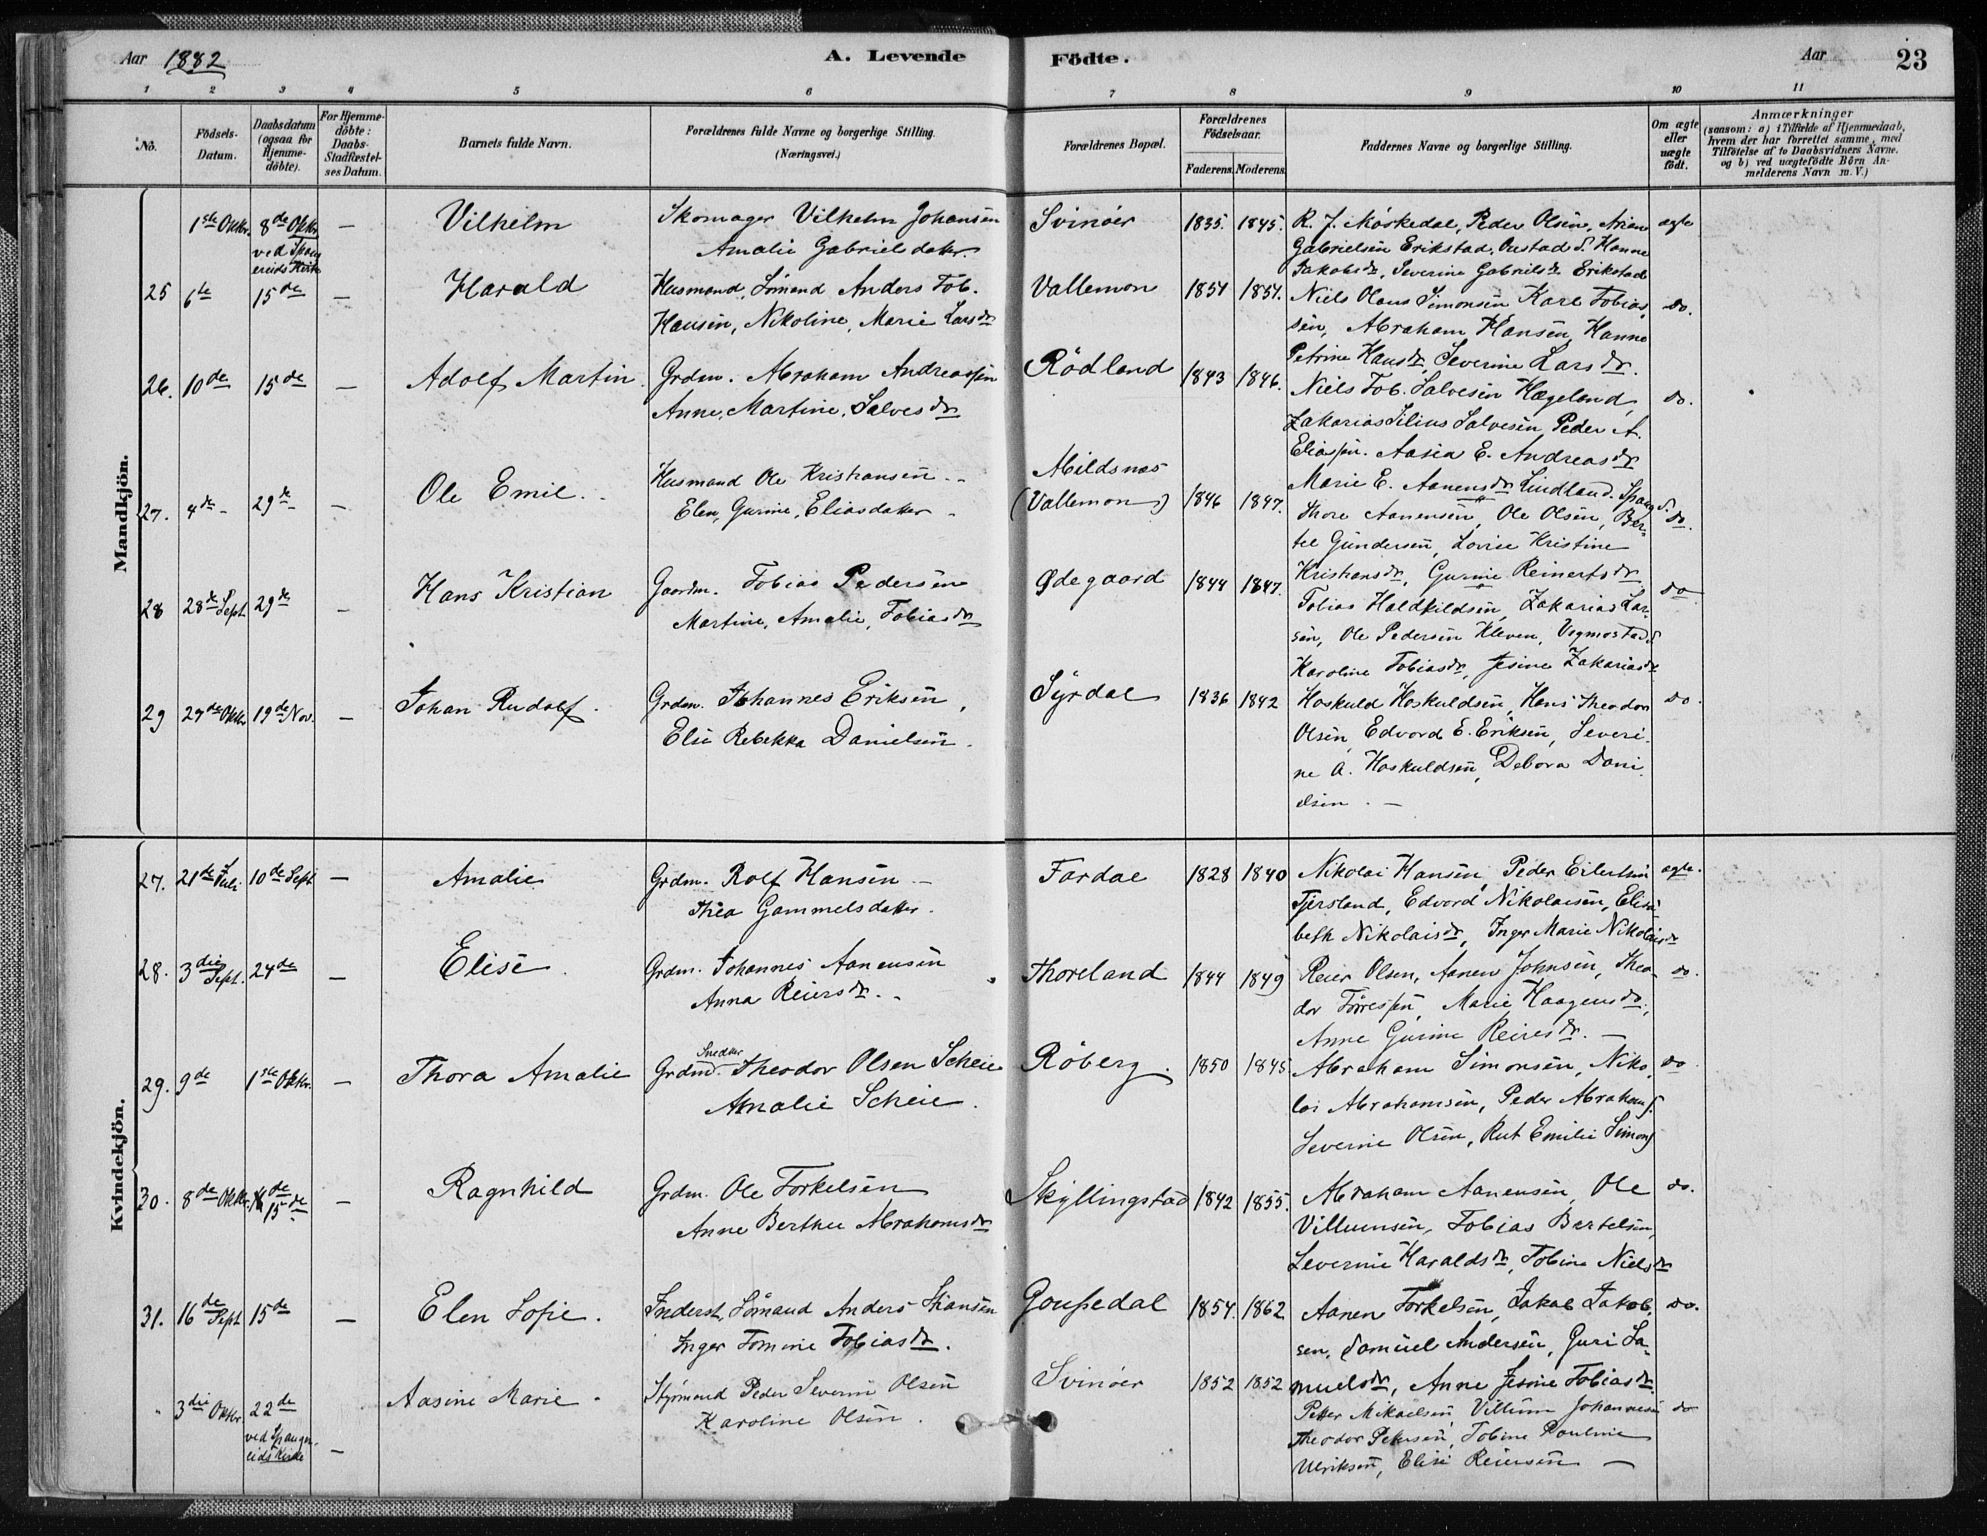 Aar 1882
A. Levende
Födte.
Aar
23
1 2 3 4 5 6 7 8 9 10 11
No.
Födsels-Datum.
Daabsdatum (ogsaa for Hjemme-döbte).
For Hjemme-döbte: Daabs-Stadfæstel-ses Datum.
Barnets fulde Navn.
Forældrenes fulde Navne og borgerlige Stilling.
(Næringsvei.)
Forældrenes Bopæl.
Forældrenes Födselsaar.
Faderens. Moderens.
Faddernes Navne og borgerlige Stilling.
Om ægte eller uægte födt.
Anmærkninger
(saasom: a) i Tilfælde af Hjemmedaab,
hvem der har forrettet samme, med
Tilföielse af to Daabsvidners Navne.
og b) ved uægtefödte Börn An-
melderens Navn m. V.)
Mandkjön.
1ste Oktbr. 8de Oktbr. ved Spangereids Kirke — Vilhelm
Skomager Vilhelm Johansen
Amalie Gabrielsdatter.
Svinöer 1835. 1845.
R. J. Mörkedal, Peder Olsen, Arian
Gabrielsen Erikstad, Oustad S. Hanne
Jakobsdr, Severine Gabrielsdr Erikstad
ægte
25 6te 15de — Harald
Husmand, Sömand Anders Tob.
Hansen, Nikoline, Marie Larsdr
Vallemon 1854 1854.
Niels Olaus Simonsen Karl Tobias
sen, Abraham Hansen, Hanne
Petrine Hansdr, Severine Larsdr.
do.
26. 10de 15de — Adolf Martin.
Grdm. Abraham Andreassen
Anne, Martine, Salvesdr
Rödland 1843 1846.
Niels Tob. Salvesen Hægeland,
Zakarias Silius Salvesen Peder A.
Eliassen. Aasia E. Andreasdr
Marie E. Aanensdr Lindland. Spang S.
do.
27. 4de 29de — Ole Emil.
Husmand Ole Kristiansen
Elen, Gurine, Eliasdatter
Mildsnæs
(Vallemon) 1846 1847.
Thore Aanensen, Ole Olsen, Ber-
tel Gundersen, Lovise Kristine
Kristiansdr, Gurine Reinertsdr
do.
28 28de Sept. 29de — Hans Kristian
Gaardm. Tobias Pedersen
Martine, Amalie, Tobiasdr
Ødegaard 1844 1847.
Tobias Haldkildsen, Zakarias Lar-
sen, Ole Pedersen Kleven, Vegmostad S.
Karoline Tobiasdr, Jesine Zakariasdr
do.
29 27de Oktbr. 19de Nov. — Johan Rudolf.
Grdm. Johannes Eriksen,
Elsi Rebekka Danielsen.
Syrdal 1836 1842
Hoskuld Hoskuldsen, Hans Theodor
Olsen, Edvard E. Eriksen, Severi-
ne A. Hoskuldsen, Debora Dani-
elsen. —
do.
Kvindekjön.
27. 21de Juli 10de Sept — Amalie
Grdm. Rolf Hansen —
Thea Gammelsdatter.
Fardal 1828 1840
Nikolai Hansen, Peder Eilertsen
Tjersland, Edvard Nikolaisen, Elisa-
beth Nikolaisdr, Inger Marie Nikolaisdr
ægte.
28. 3die Sept. 24de — Elise.
Grdm. Johannes Aanensen
Anna Reiersdr.
Thoreland 1844 1849
Reier Olsen, Aanen Johnsen, Theo-
dor Törressen, Marie Haagensdr,
Anne Gurine Reiersdr. —
do.
29. 9de 1ste Oktbr. — Thora Amalie
Snedker
Grdm. Theodor Olsen Scheie
Amalie Scheie.
Röberg. 1850 1845.
Abraham Simonsen, Niko-
lai Abrahamsen, Peder Abrahams.
Severine Olsen, Rut Emilie Simons
do.
30. 8de Oktbr. 15de — Ragnhild
Grdm. Ole Torkelsen
Anne Berthe Abrahamsdr
Skyllingstad 1842 1855.
Abraham Aanensen, Ole
Villumsen, Tobias Bertelsen,
Severine Haraldsdr, Tobine Nielsdr
do.
31. 16de Sept 15de — Elen Sofie.
Inderst, Sömand Anders Hansen
Inger Tomine Tobiasdr.
Goussedal 1854. 1862
Aanen Torkelsen, Jakob Jakob-
sen, Samuel Andersen, Guri Sa-
muelsdr, Anne Jesine Tobiasdr.
do.
3die Oktbr 22de ved Spangereids Kirke — Aasine Marie.
Styrmand Peder Severin Olsen
Karoline Olsen.
Svinöer 1852 1852
Petter Mikaelsen, Villum Johannesen
Theodor Petersen, Tobine Pauline
Ulriksen, Elisi Reiersen —
do